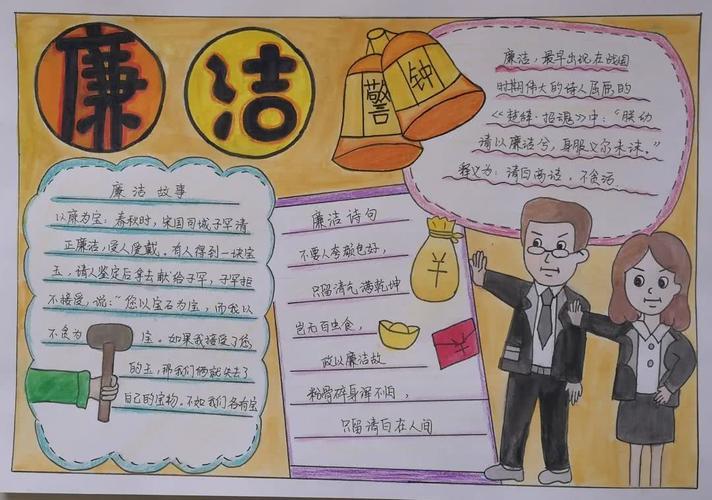 廉洁
警钟
廉洁，最早出现在战国
时期伟大的诗人屈原的
《楚辞·招魂》中："朕幼
清以廉洁兮，身服义尔未沫。"
释义为：清白高洁，不贪污
廉洁故事
以廉为宝：春秋时，宋国司城子罕清
正廉洁，受人爱戴。有人得到一块宝
玉，请人鉴定后拿去献给子罕，子罕拒
不接受，说："您以宝石为宝，而我以
不贪为宝。如果我接受了您
的玉，那我们俩就失去了
自己的宝物。不如我们各有宝
廉洁诗句
不要人夸颜色好，
只留清气满乾坤
岂无百虫食，
故以廉洁故
粉骨碎身浑不怕，
只留清白在人间
¥
¥